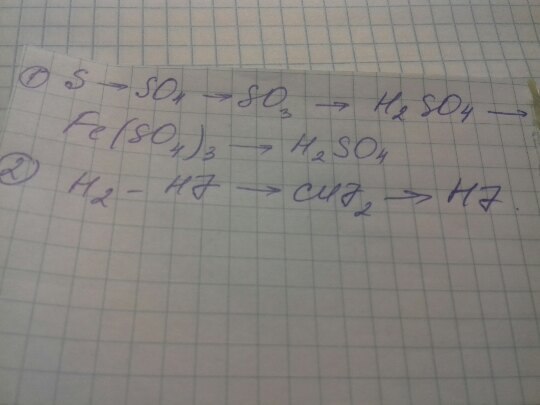 ① S → SO4 → SO3 → H2SO4 →
Fe(SO4)3 → H2SO4
② H2 - HJ → CuJ2 → HJ.